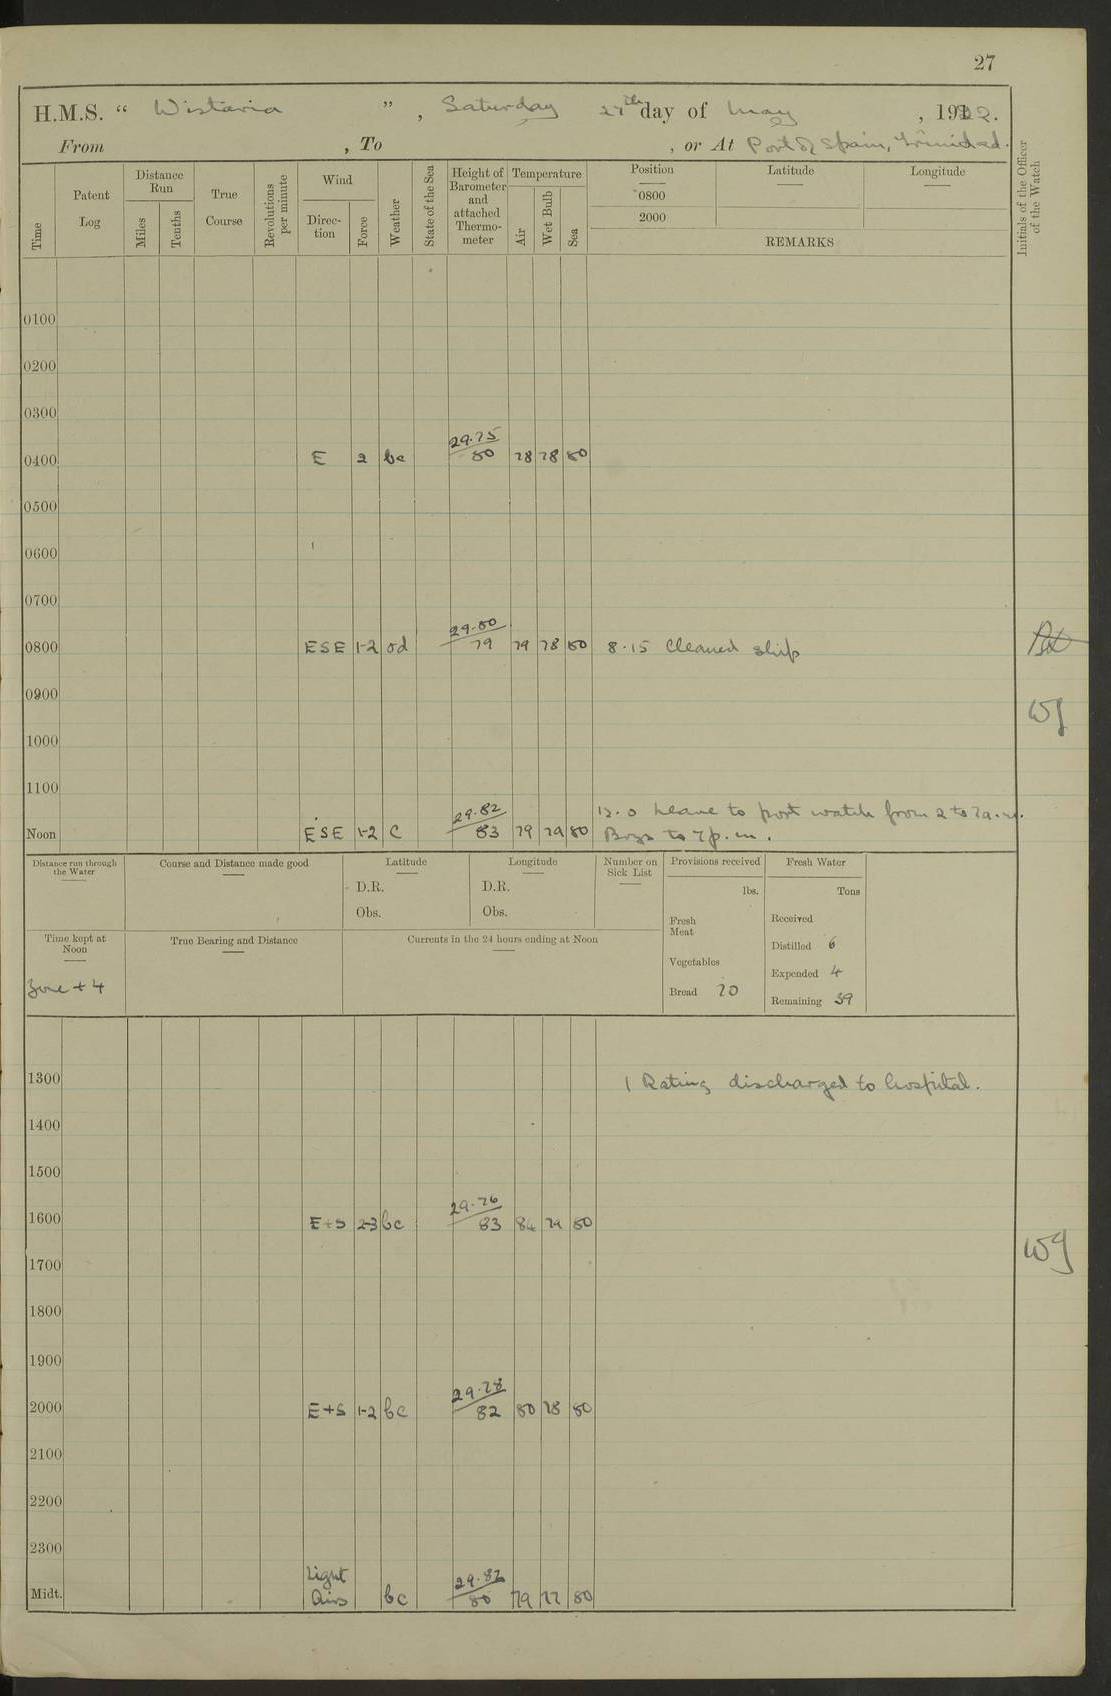 27
H.M.S. “ Wistaria ” , Saturday 27th day of May , 1922.
From , To , or At Port of Spain, Trinidad.
Time Patent Log Distance Run Miles Tenths True Course Revolutions per minute Wind Direc-tion Force Weather State of the Sea Height of Barometer and attached Thermo-meter Temperature Air Wet Bulb Sea Position 0800 2000 Latitude Longitude REMARKS Initials of the Officer of the Watch
0100
0200
0300
29.75
0400 E 2 bc 80 78 78 80
0500
0600
0700
29.80
0800 ESE 1-2 od 79 79 78 80 8.15 Cleaned ship
0900 WJ
1000
1100
29.82 12.0 Leave to port watch from 2 to 7a.m.
Noon ESE 1-2 C 83 79 79 80 Boys to 7 p.m.
Distance run through the Water Course and Distance made good Latitude Longitude Number on Sick List Provisions received Fresh Water
D.R. D.R. lbs. Tons
Obs. Obs. Fresh Meat Received
Time kept at Noon True Bearing and Distance Currents in the 24 hours ending at Noon Distilled 6
Vegetables Expended 4
Zone + 4 Bread 70 Remaining 39
1300 1 Rating discharged to hospital.
1400
1500
29.76
1600 E+S 2-3 bc 83 84 79 80
WJ
1700
1800
1900
29.78
2000 E+S 1-2 bc 82 80 78 80
2100
2200
2300
Light 29.82
Midt. Airs bc 80 79 77 80